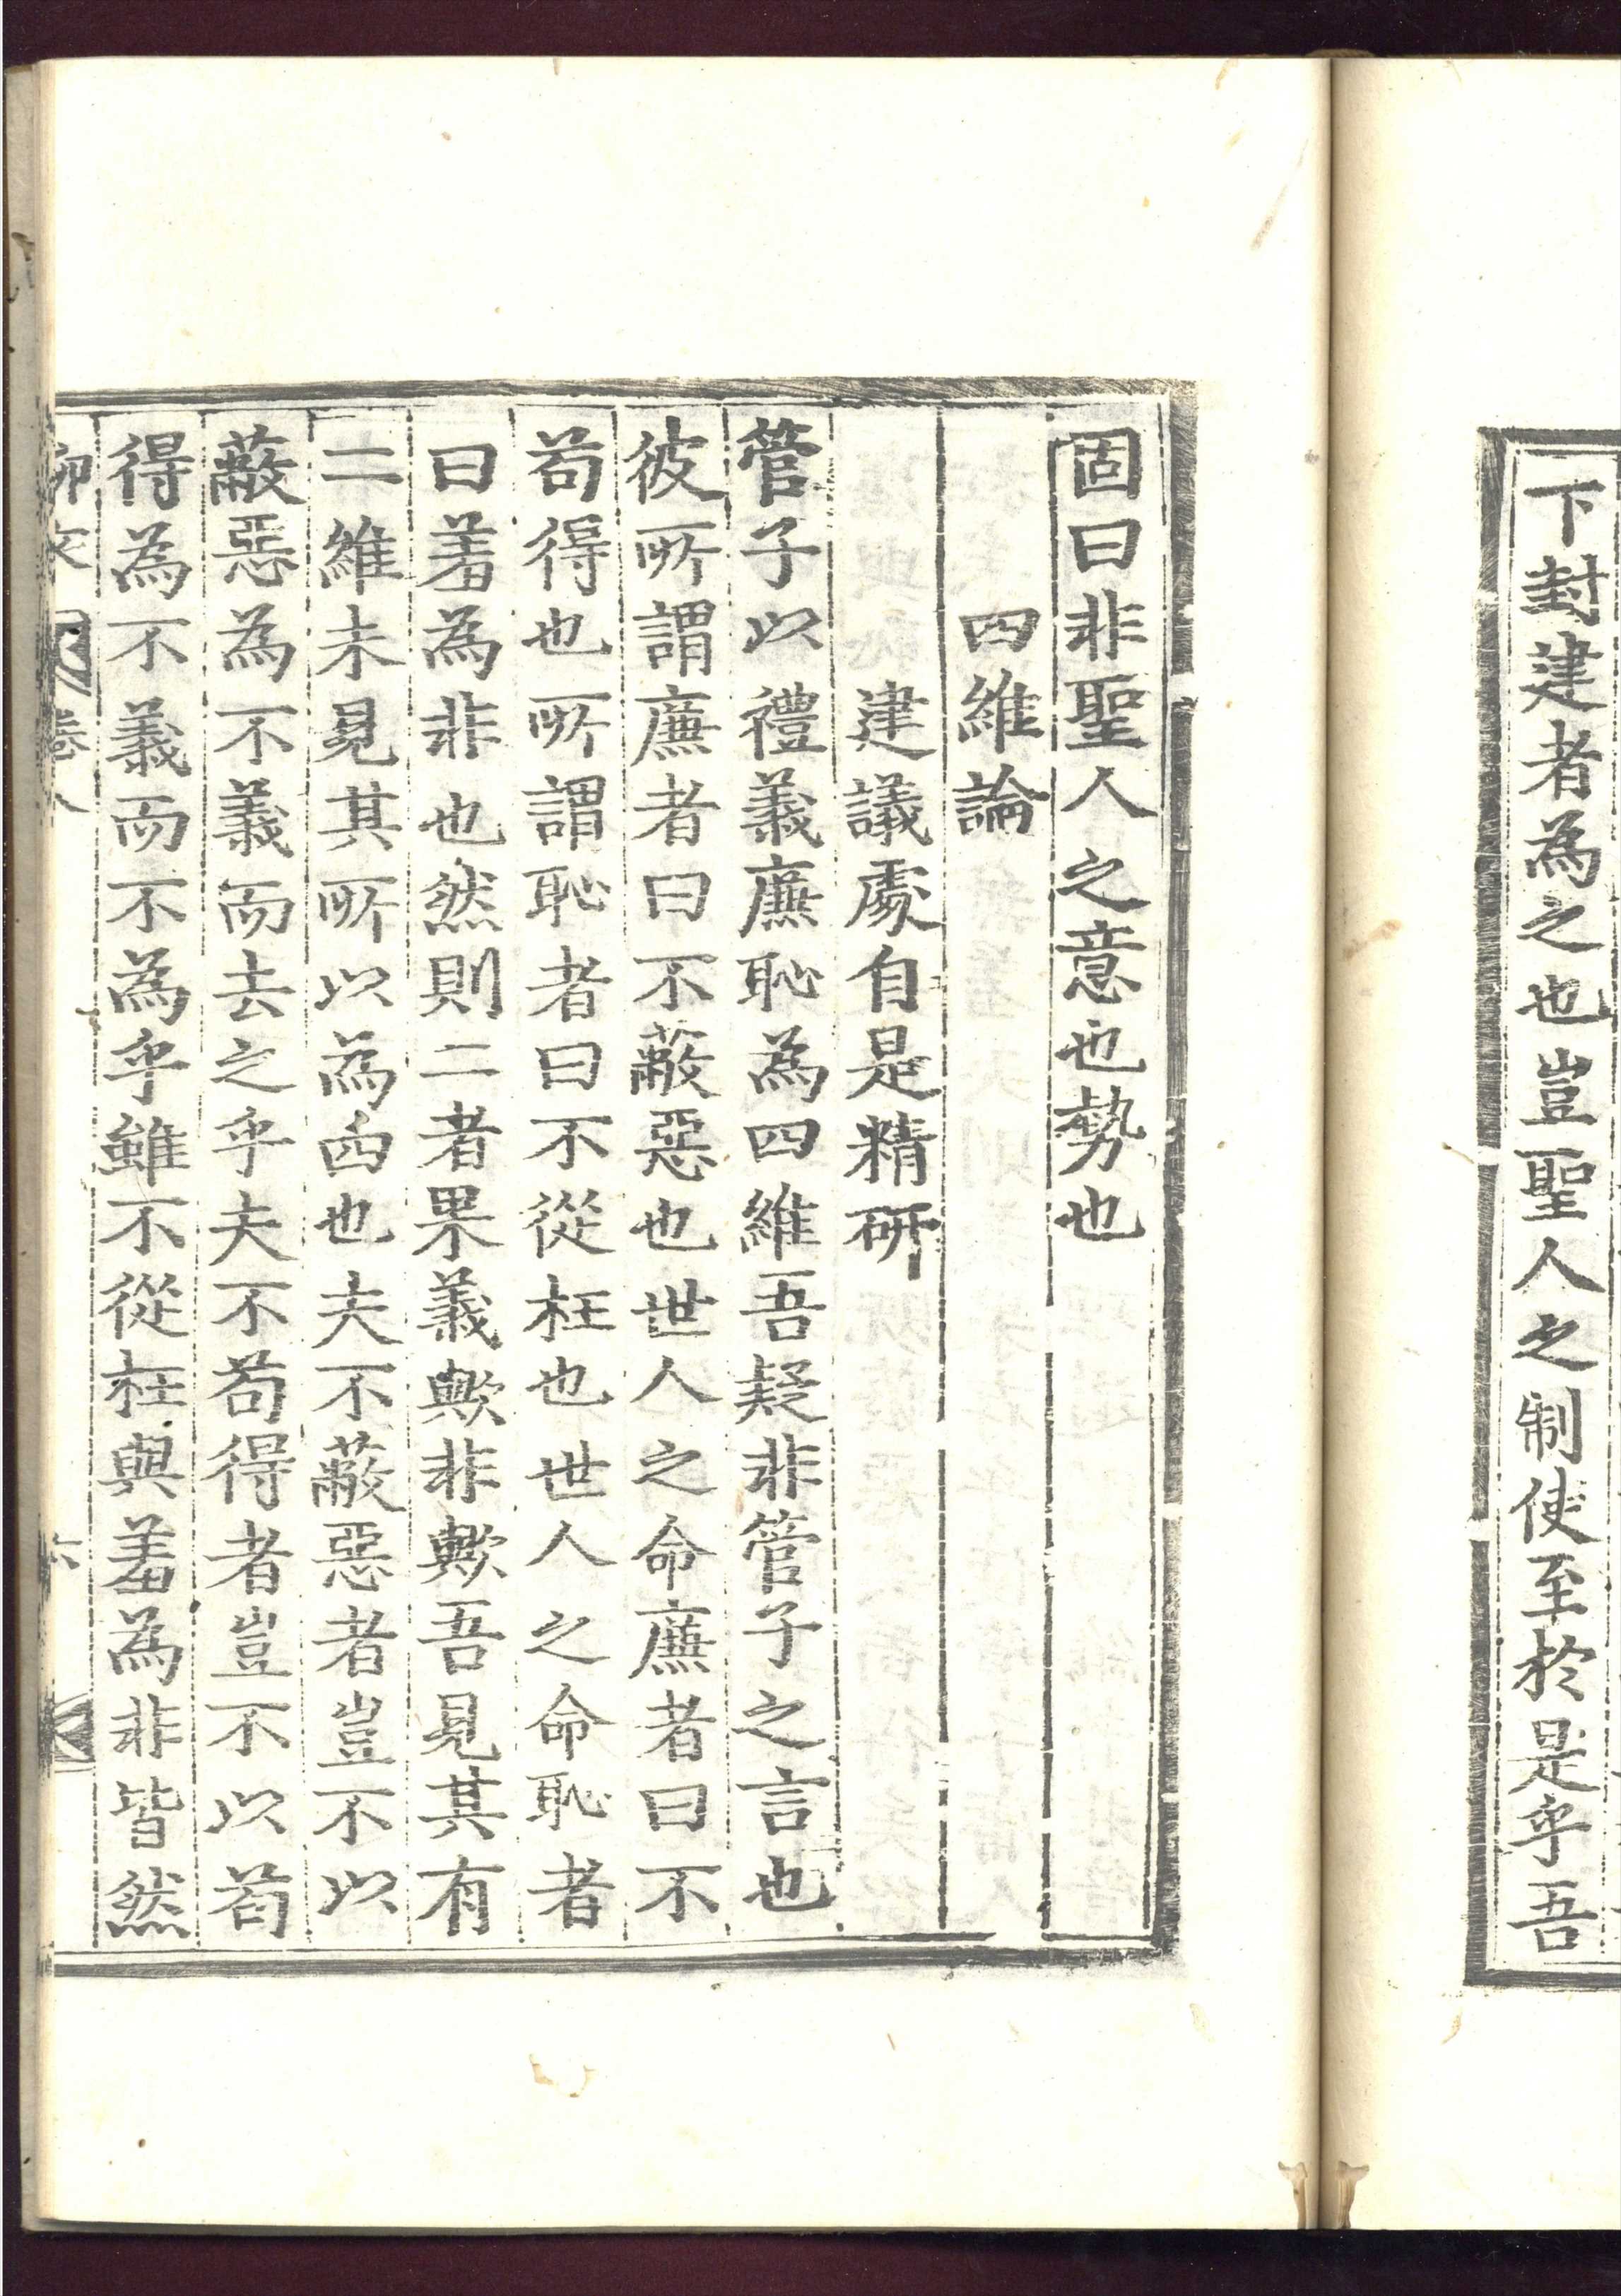 下封建者為之也豈聖人之制使至於是乎吾
固曰非聖人之意也勢也
四維論
建議處自是精研
管子以禮義廉恥為四維吾疑非管子之言也
彼所謂廉者曰不蔽惡也世人之命廉者曰不
苟得也所謂恥者曰不從枉也世人之命恥者
曰羞為非也然則二者果義歟非歟吾見其有
二維未見其所以為四也夫不蔽惡者豈不以
蔽惡為不義而去之乎夫不苟得者豈不以苟
得為不義而不為乎雖不從枉與羞為非皆然
柳文 卷八 六